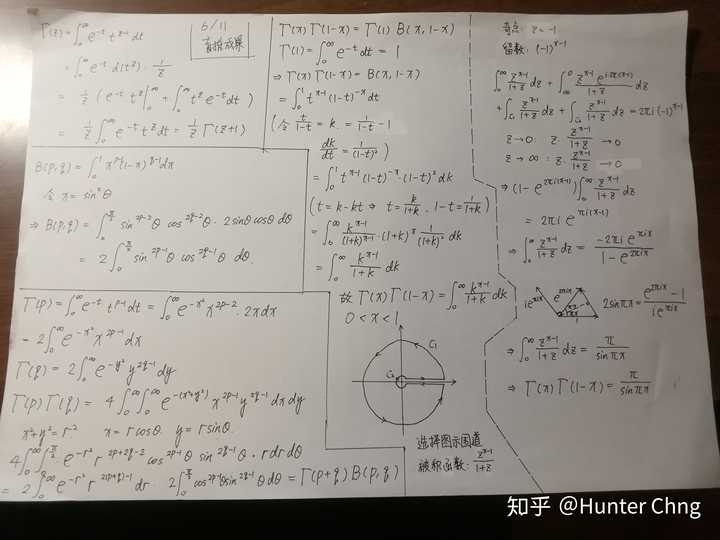 Γ(z)=∫₀^∞ e^{-t} t^{z-1} dt
=∫₀^∞ e^{-t} d(t^z)·1/z
= 1/z (e^{-t} t^z|₀^∞ + ∫₀^∞ t^z e^{-t} dt)
= 1/z ∫₀^∞ e^{-t} t^z dt = 1/z Γ(z+1)
6/11
B(p,q)=∫₀^1 x^{p-1}(1-x)^{q-1} dx
令 x=sin²θ
⇒ B(p,q)=∫₀^{π/2} sin^{2p-2}θ cos^{2q-2}θ·2sinθcosθ dθ
= 2∫₀^{π/2} sin^{2p-1}θ cos^{2q-1}θ dθ.
Γ(p)=∫₀^∞ e^{-t} t^{p-1} dt=∫₀^∞ e^{-x²} x^{2p-2}·2x dx
= 2∫₀^∞ e^{-x²} x^{2p-1} dx
Γ(q)=2∫₀^∞ e^{-y²} y^{2q-1} dy
Γ(p)Γ(q)= 4∫₀^∞∫₀^∞ e^{-(x²+y²)} x^{2p-1} y^{2q-1} dx dy
x²+y²=r². x=rcosθ. y=rsinθ.
4∫₀^∞∫₀^{π/2} e^{-r²} r^{2p+2q-2} cos^{2p-1}θ sin^{2q-1}θ·r dr dθ
= 2∫₀^∞ e^{-r²} r^{2(p+q)-1} dr·2∫₀^{π/2} cos^{2p-1}θ sin^{2q-1}θ dθ = Γ(p+q)B(p,q)
Γ(x)Γ(1-x)=Γ(1)B(x,1-x)
Γ(1)=∫₀^∞ e^{-t} dt = 1
⇒ Γ(x)Γ(1-x)=B(x,1-x)
=∫₀^1 t^{x-1}(1-t)^{-x} dt
(令 t/(1-t)=k.=1/(1-t)-1
dk/dt=1/(1-t)²)
=∫₀^1 t^{x-1}(1-t)^{-x}·(1-t)² dk
(t=k-kt ⇒ t=k/(1+k).1-t=1/(1+k))
=∫₀^∞ k^{x-1}/(1+k)^{x-1}·(1+k)^x 1/(1+k)² dk
=∫₀^∞ k^{x-1}/(1+k) dk
故 Γ(x)Γ(1-x)=∫₀^∞ k^{x-1}/(1+k) dk
0<x<1
C₁
C₂
选择图示围道
被积函数:z^{x-1}/(1+z)
奇点:z=-1
留数:(-1)^{x-1}
∫₀^∞ z^{x-1}/(1+z) dz+∫_∞^0 z^{x-1}e^{i2π(x-1)}/(1+z) dz
+∫_{C₁} z^{x-1}/(1+z) dz+∫_{C₂} z^{x-1}/(1+z) dz=2πi(-1)^{x-1}
z→0: z·z^{x-1}/(1+z) →0
z→∞: z·z^{x-1}/(1+z) →0
⇒ (1-e^{2πi(x-1)})∫₀^∞ z^{x-1}/(1+z) dz
= 2πi e^{πi(x-1)}
⇒ ∫₀^∞ z^{x-1}/(1+z) dz= -2πi e^{πix}/(1-e^{2πix})
ie^{πix} e^{2πix} πx 1 2sinπx=(e^{2πix}-1)/(ie^{πix})
⇒ ∫₀^∞ z^{x-1}/(1+z) dz= π/sinπx
⇒ Γ(x)Γ(1-x)= π/sinπx
知乎 @Hunter Chng